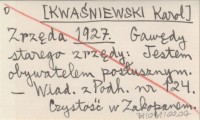 [KWAŚNIEWSKI Karol]
Zrzęda 1927. Gawędy
starego zrzędy: Jestem
obywatelem posłusznym.
— Wiad. z Podh. nr 124.
Czystość w Zakopanem.